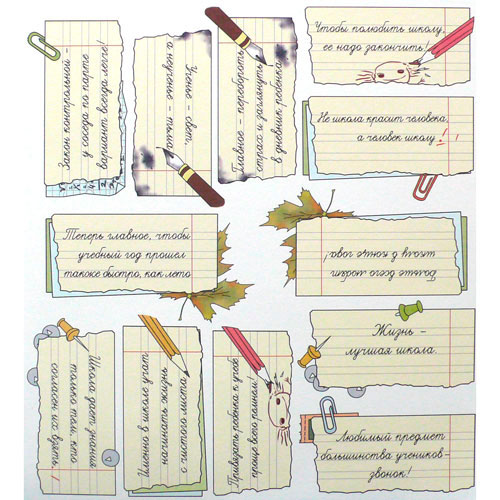 Закон контрольной –
у соседа по парте
вариант всегда легче!
Ученье – свет,
а неученье – тьма.
Главное – перебороть
страх и заглянуть
в дневник ребенка.
Чтобы полюбить школу,
ее надо закончить!
Не школа красит человека,
а человек школу!
Теперь главное, чтобы
учебный год прошел
также быстро, как лето
Больше всего любят
школу в конце года!
Школа дает знания
только тем, кто
согласен их взять.
Именно в школе учат
начинать жизнь
с чистого листа.
Привязать ребенка к учебе
проще всего ремнем!
Жизнь –
лучшая школа.
Любимый предмет
большинства учеников-
звонок!